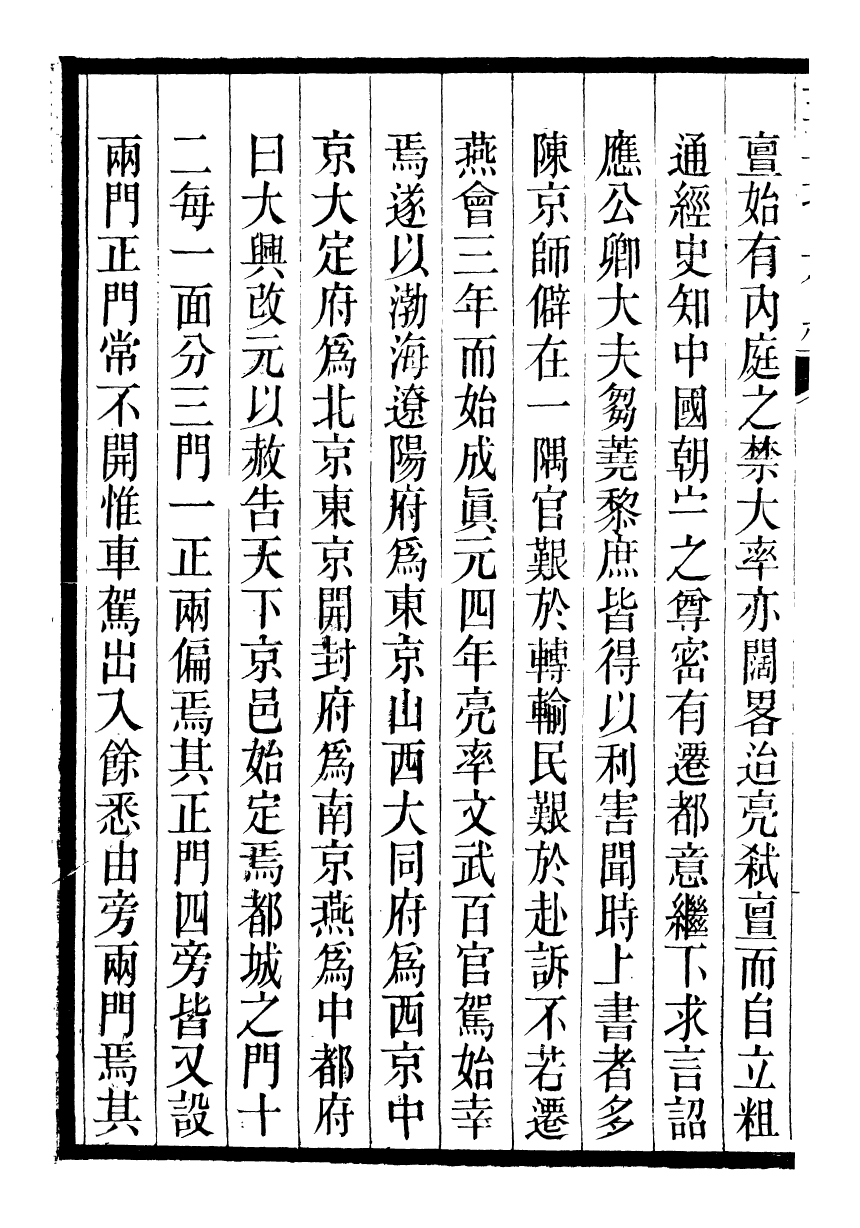 亶始有內庭之禁大率亦闊畧迨亮弑亶而自立粗
通經史知中國朝之尊密有遷都意繼下求言詔
應公卿大夫芻蕘黎庶皆得以利害聞時上書者多
陳京師僻在一隅官艱於轉輸民艱於赴訴不若遷
燕會三年而始成眞元四年亮率文武百官駕始幸
焉遂以渤海遼陽府爲東京山西大同府爲西京中
京大定府爲北京東京開封府爲南京燕爲中都府
曰大興改元以赦告天下京邑始定焉都城之門十
二每一面分三門一正兩偏焉其正門四旁皆又設
兩門正門常不開惟車駕出入餘悉由旁兩門焉其